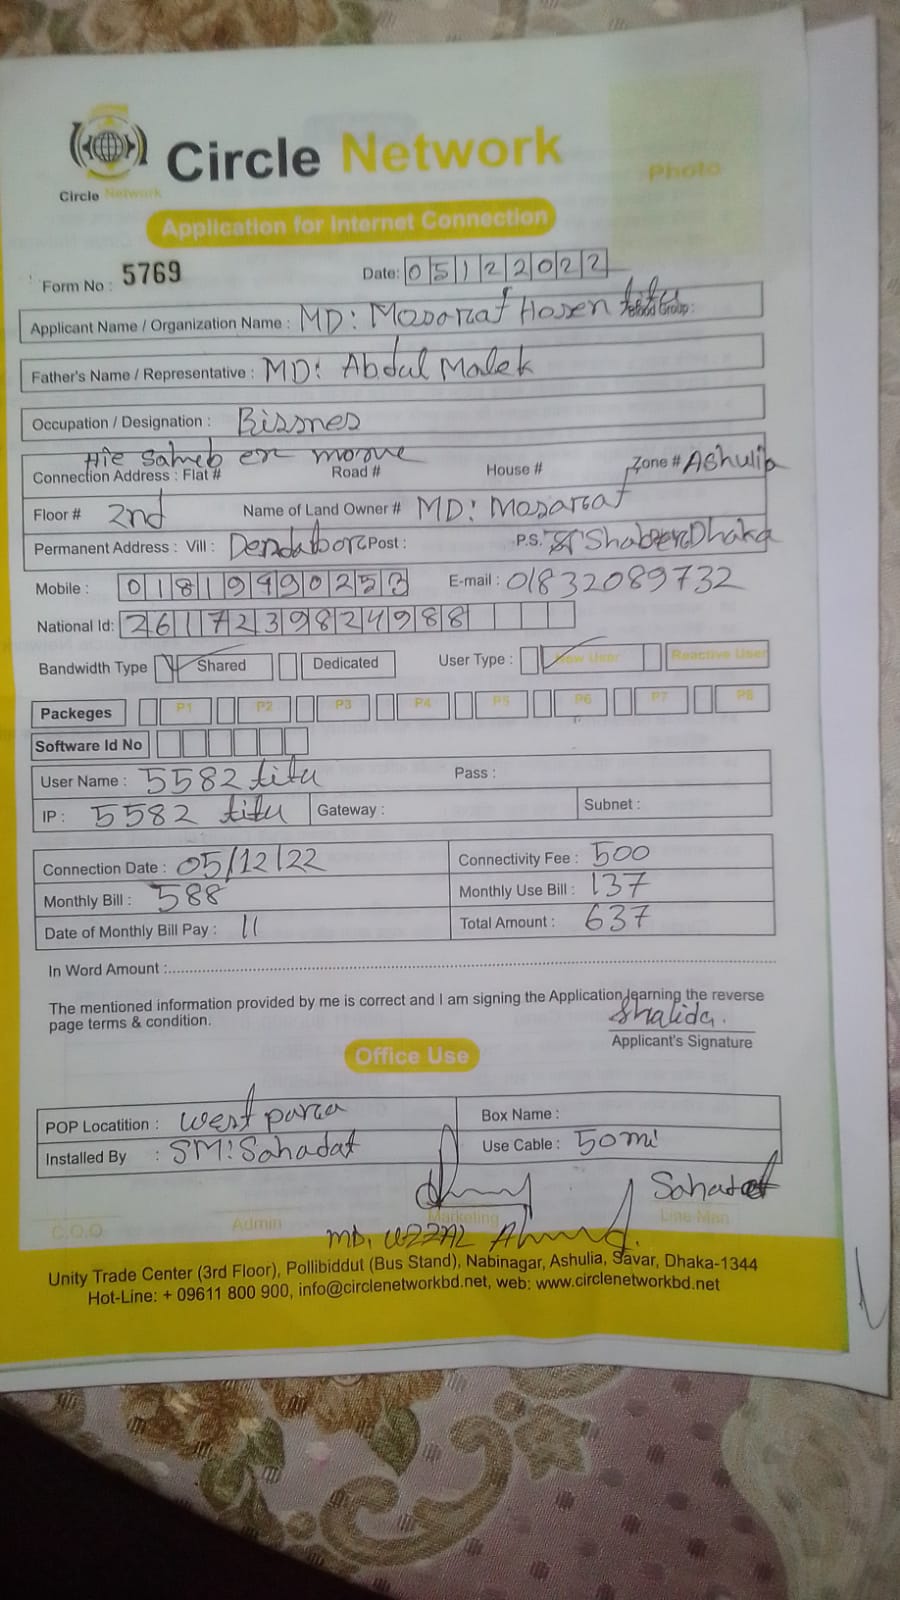 Circle Network
Circle Network
Photo
Application for Internet Connection
Form No : 5769
Date: 05122022
Applicant Name / Organization Name : MD: Mosarraf Hosen titu Blood Group:
Father's Name / Representative : MD: Abdul Malek
Occupation / Designation : Bisnes
saheb er
Connection Address : Flat # Road # House # Zone # Ashulia
Floor # 2nd Name of Land Owner # MD: Mosarraf
Permanent Address : Vill : Post : P.S. Dhaka
Mobile : 01819990253 E-mail : 01832089732
National Id: 2617239824988
Bandwidth Type Shared Dedicated User Type : New User Reactive User
Packeges P1 P2 P3 P4 P5 P6 P7 P8
Software Id No
User Name : 5582 titu Pass :
IP : 5582 titu Gateway : Subnet :
Connection Date : 05/12/22 Connectivity Fee : 500
Monthly Bill : 588 Monthly Use Bill : 137
Date of Monthly Bill Pay : 11 Total Amount : 637
In Word Amount :
The mentioned information provided by me is correct and I am signing the Application learning the reverse
page terms & condition.
Shalida.
Applicant's Signature
Office Use
POP Locatition : west para Box Name :
Installed By : SM: Sahadat Use Cable : 50 mi
Sahadat
C.O.O Admin Marketing Line Man
MD. UZZAL Ahmed.
Unity Trade Center (3rd Floor), Pollibiddut (Bus Stand), Nabinagar, Ashulia, Savar, Dhaka-1344
Hot-Line: + 09611 800 900, info@circlenetworkbd.net, web: www.circlenetworkbd.net